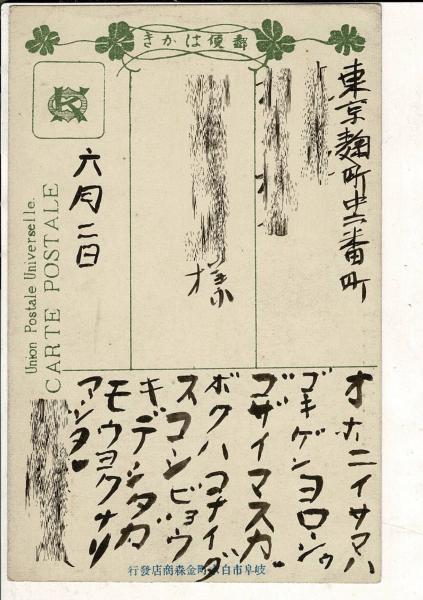 郵便はかき
東京麹町中六番町
様
六月二日
Union Postale Universelle.
CARTE POSTALE
オホニイサマハ
ゴキゲンヨロシウ
ゴザイマスカ
ボクハコナイダ
スコシビョウ
キデシタガ
モウヨクナリ
マシタ
岐阜市白木町金森商店發行